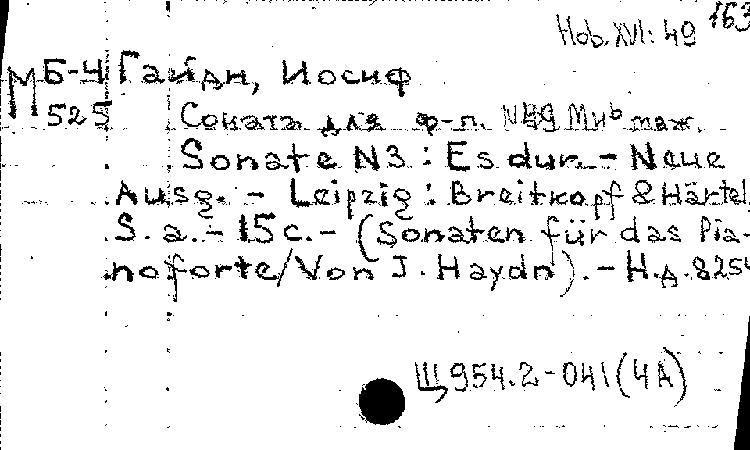 Hob. XVI: 49 163
М Б-4 Гайдн, Иосиф
525 Соната для ф-п. N49 Ми♭ маж.
Sonate N3: Es dur. - Neue
Ausg. - Leipzig: Breitkopf & Härtel,
S. a. - 15 с. - (Sonaten für das Pia-
noforte/Von J. Haydn). - Н.д. 8254
Щ954.2-041(4А)